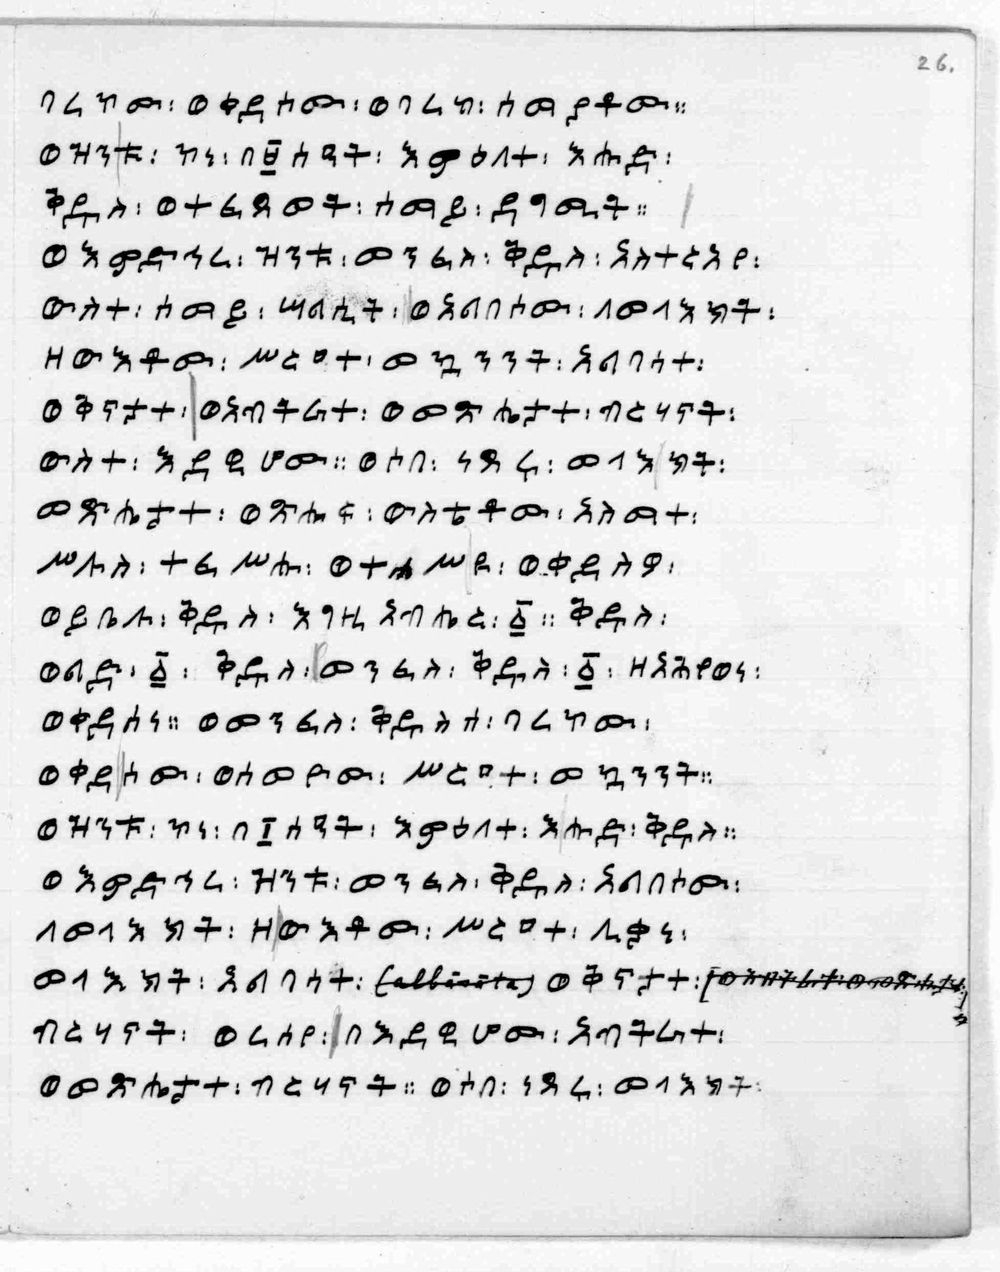 26.
ባረኮሙ፡ ወቀደሶሙ፡ ወባረኮ፡ ለማያቶሙ።
ወዝንቱ፡ ኮነ፡ በ፱ሰዓት፡ እምዕለተ፡ እሑድ፡
ቅዱስ፡ ወተፈጸመት፡ ለማይ፡ ደግመት።
ወእምድኅረ፡ ዝንቱ፡ መንፈስ፡ ቅዱስ፡ አስተርአየ፡
ውስተ፡ ሰማይ፡ ሣልሲት፡ ወአልበሶሙ፡ ለመላእክት፡
ዘውእቶሙ፡ ሥርዐተ፡ መኳንንት፡ አልባሰ፡
ወቅናታተ፡ ወአብትራተ፡ ወመጽሔታተ፡ ብርሃናት፡
ውስተ፡ እደዊሆሙ። ወሶበ፡ ነጸሩ፡ መላእክት፡
መጽሔታተ፡ ወጽሑፍ፡ ውስቴቶሙ፡ አስማተ፡
ሥሉስ፡ ተፈሥሑ፡ ወተሐሥዩ፡ ወቀደስዎ፡
ወይቤሉ፡ ቅዱስ፡ እግዚአብሔር፡ ፩። ቅዱስ፡
ወልድ፡ ፩፡ ቅዱስ፡ መንፈስ፡ ቅዱስ፡ ፩፡ ዘአሕየወነ፡
ወቀደሰነ። ወመንፈስ፡ ቅዱስሰ፡ ባረኮሙ፡
ወቀደሶሙ፡ ወሰመዮሙ፡ ሥርዐተ፡ መኳንንት።
ወዝንቱ፡ ኮነ፡ በ፲ሰዓት፡ እምዕለተ፡ እሑድ፡ ቅዱስ።
ወእምድኅረ፡ ዝንቱ፡ መንፈስ፡ ቅዱስ፡ አልበሶሙ፡
ለመላእክት፡ ዘውእቶሙ፡ ሥርዐተ፡ ሊቃነ፡
መላእክት፡ አልባሰ፡ ወቅናታተ፡
ብርሃናት፡ ወረሰየ፡ በእደዊሆሙ፡ አብትራተ፡
ወመጽሔታተ፡ ብርሃናት። ወሶበ፡ ነጸሩ፡ መላእክት፡